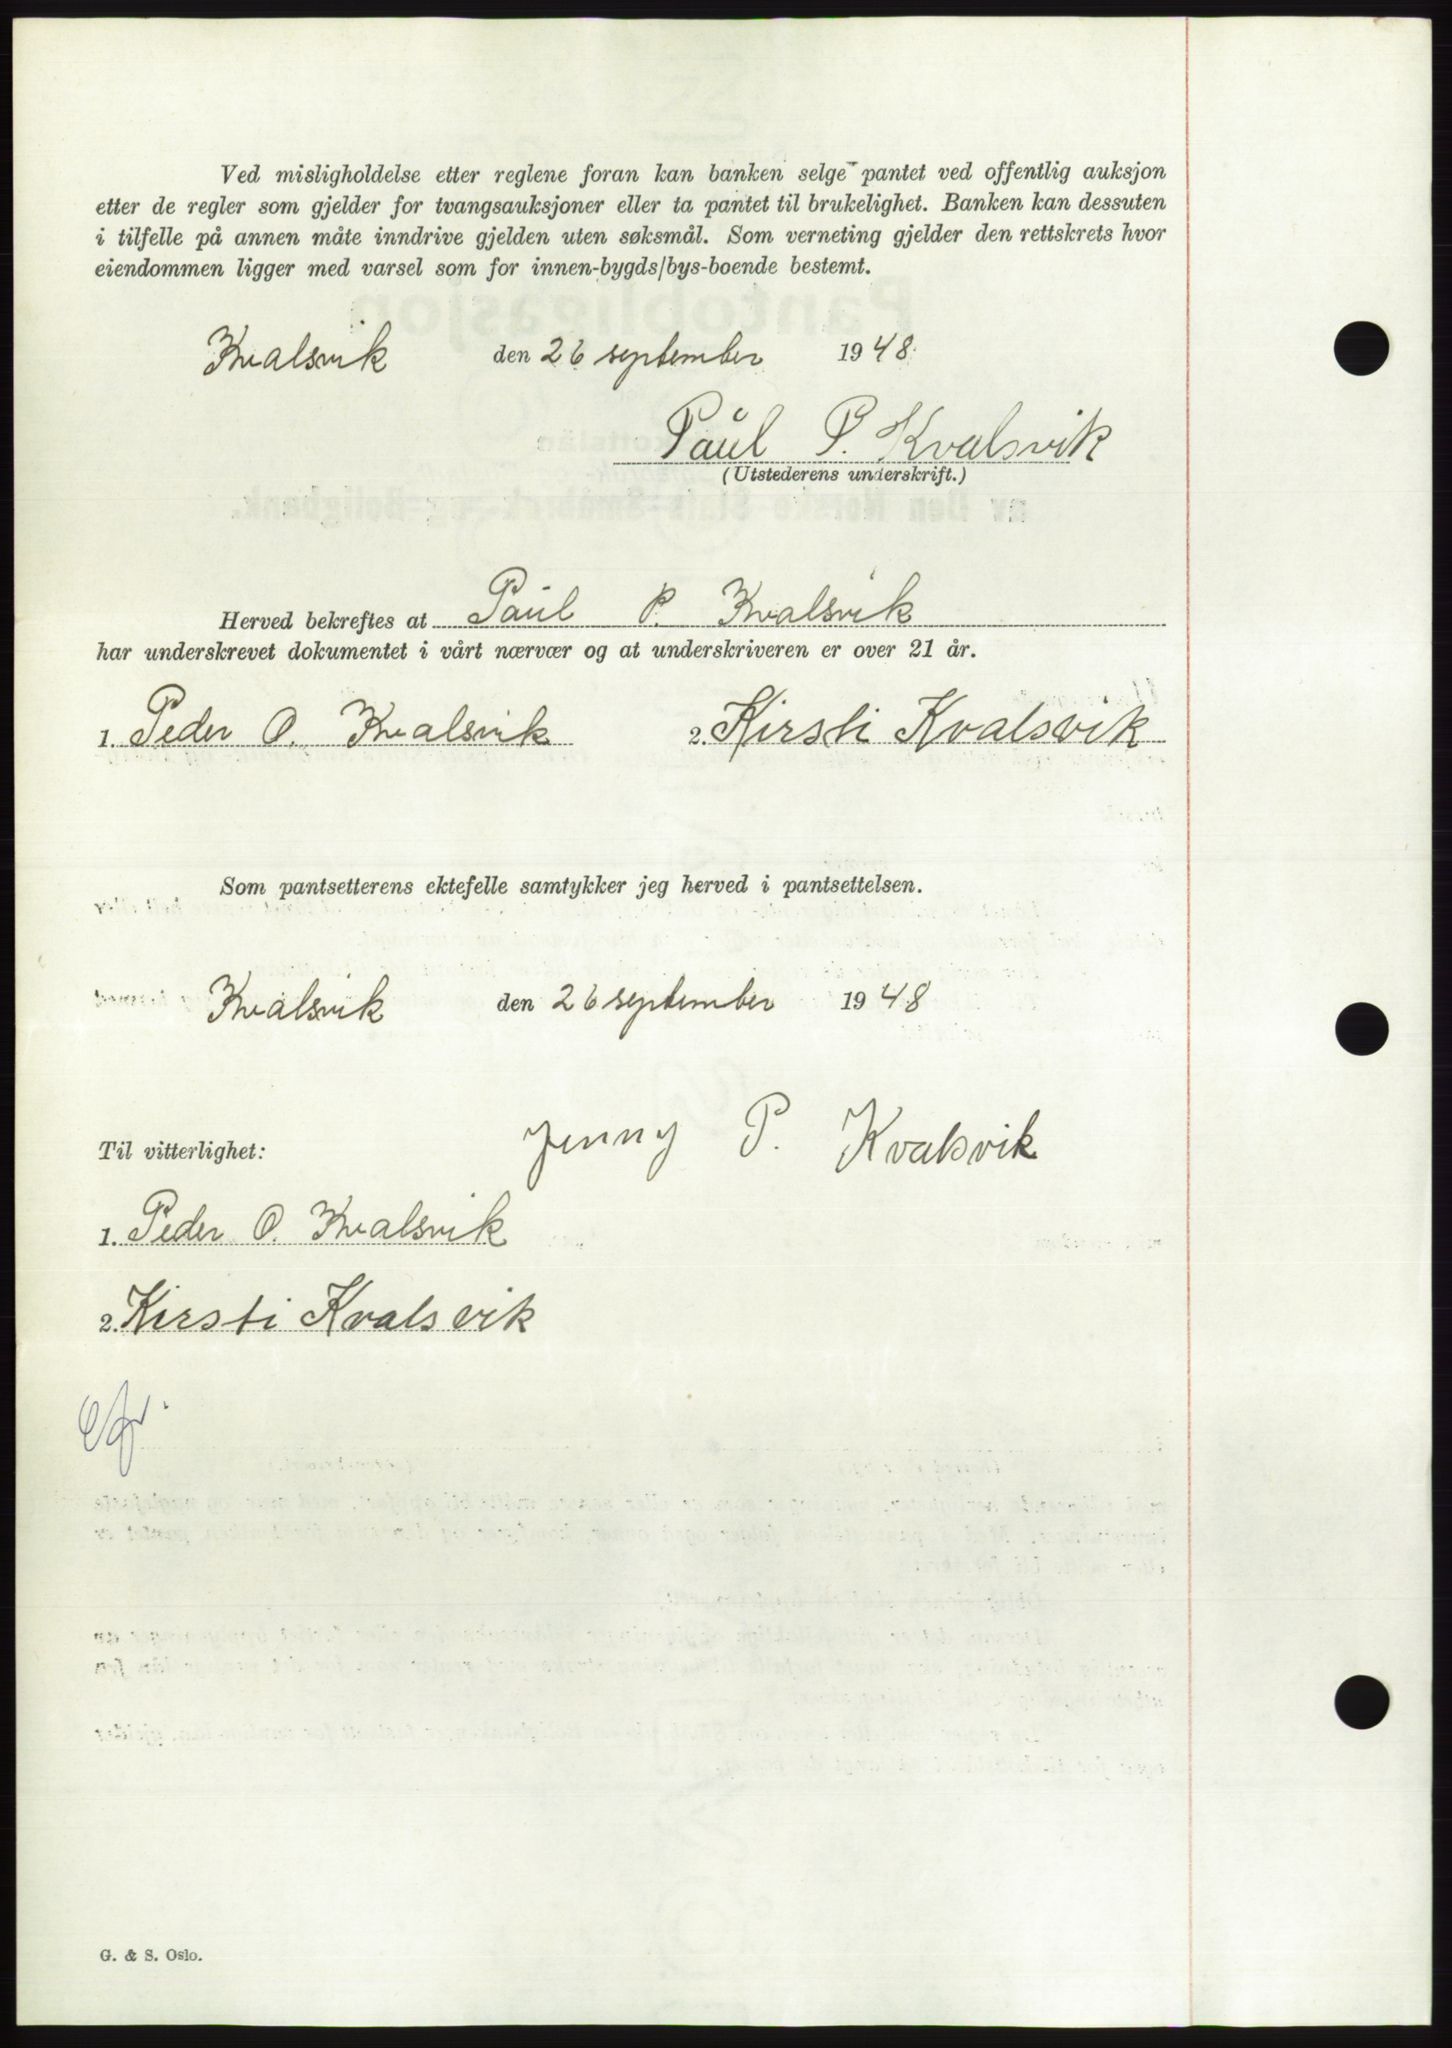 Ved misligholdelse etter reglene foran kan banken selge pantet ved offentlig auksjon
etter de regler som gjelder for tvangsauksjoner eller ta pantet til brukelighet. Banken kan dessuten
i tilfelle på annen måte inndrive gjelden uten søksmål. Som verneting gjelder den rettskrets hvor
eiendommen ligger med varsel som for innen-bygds/bys-boende bestemt.
Kvalsvik den 26 september 1948
Paul P. Kvalsvik
(Utstederens underskrift.)
Herved bekreftes at Paul P. Kvalsvik
har underskrevet dokumentet i vårt nærvær og at underskriveren er over 21 år.
1. Peder O. Kvalsvik 2. Kirsti Kvalsvik
Som pantsetterens ektefelle samtykker jeg herved i pantsettelsen.
Kvalsvik den 26 september 1948
Jenny P. Kvalsvik
Til vitterlighet:
1. Peder O. Kvalsvik
2. Kirsti Kvalsvik
G. & S. Oslo.